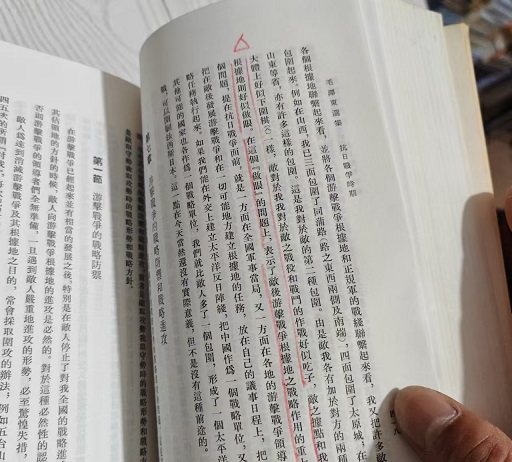 毛澤東選集 抗日戰爭時期
各個根據地聯繫起來看,並將各個游擊戰爭根據地和正規軍的戰綫聯繫起來看,我又把許多敵
包圍起來。例如在山西,我已三面包圍了同蒲路(路之東西兩側及南端),四面包圍了太原城;在
山東等省,亦有許多這樣的包圍。這是我對於敵的第二種包圍。由是敵我各有加於對方的兩種
大體上好似下圍棋〔六〕一樣,敵對於我我對於敵之戰役和戰鬥的作戰好似吃子,敵之據點和我
根據地則好似做眼。在這個“做眼”的問題上,表示了敵後游擊戰爭根據地之戰略作用的重
個問題,提在抗日戰爭面前,就是一方面在全國軍事當局,又一方面在各地的游擊戰爭領導
把在敵後發展游擊戰爭和在一切可能地方建立根據地的任務,放在自己的議事日程上,把
略任務執行起來。如果我們能在外交上建立太平洋反日陣綫,把中國作爲一個戰略單位,又
其他可能的國家也各作爲一個戰略單位,我們就比敵人多了一個包圍,形成了一個太平洋
戰,可以圍剿法西斯日本。這一點在今天當然還沒有實際意義,但不是沒有這種前途的。
第七章 游擊戰爭的戰略防禦和戰略進攻
第一節 游擊戰爭的戰略防禦
在游擊戰爭已經起來並有相當的發展之後,特別是在敵人停止了對我全國的戰略進
其佔領地的方針的時候,敵人向游擊戰爭根據地的進攻是必然的。對於這種必然性的認
否則游擊戰爭的領導者們全無準備,一旦遇到敵人嚴重地進攻的形勢,必至驚惶失措,
敵人爲達到消滅游擊戰爭及其根據地之目的,常會採取圍攻的辦法,例如五台山